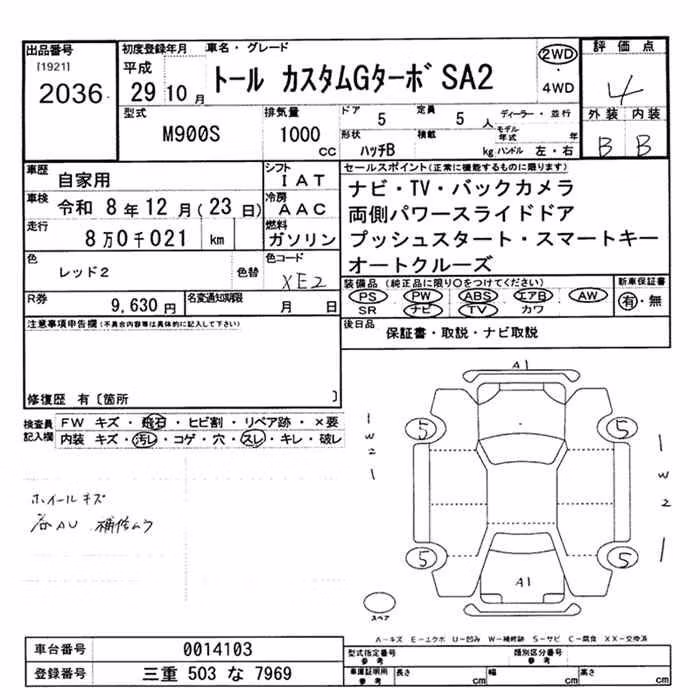 出品番号 初度登録年月 車名・グレード 評価点
[1921] 平成 トール カスタムGターボ SA2 2WD
2036 29年10月 ・4WD 4
型式 排気量 ドア 5 定員 5人 ディーラー・並行 外装 内装
M900S 1000cc 形状 ハッチB 積載 kg モデル年式 年 ハンドル 左・右 B B
車歴 自家用 シフト IAT セールスポイント(正常に機能するものに限ります)
車検 令和 8年12月(23日) 冷房 AAC ナビ・TV・バックカメラ
走行 8万0千021 km 燃料 ガソリン 両側パワースライドドア
プッシュスタート・スマートキー
オートクルーズ
色 レッド2 色替 色コード XE2
装備品(純正品に限り○をつけてください) 新車保証書
PS PW ABS エアB AW 有・無
SR ナビ TV カワ
R券 9,630円 名変通知期限 月 日
後日品 保証書・取説・ナビ取説
注意事項申告欄(不具合内容等は具体的に記入して下さい)
修復歴 有〔箇所 〕
検査員記入欄 FW キズ・飛石・ヒビ割・リペア跡・×要
内装 キズ・汚レ・コゲ・穴・スレ・キレ・破レ
ホイールキズ
各AU 補修ムラ
A1
5 5
1 W2 1
1 W2 1
5 5
A1
スペア
A-キズ E-エクボ U-凹み W-補修跡 S-サビ C-腐食 XX-交換済
車台番号 0014103
登録番号 三重 503 な 7969
型式指定番号 参考 類別区分番号 参考
車庫証明用 参考 長さ cm 幅 cm 高さ cm